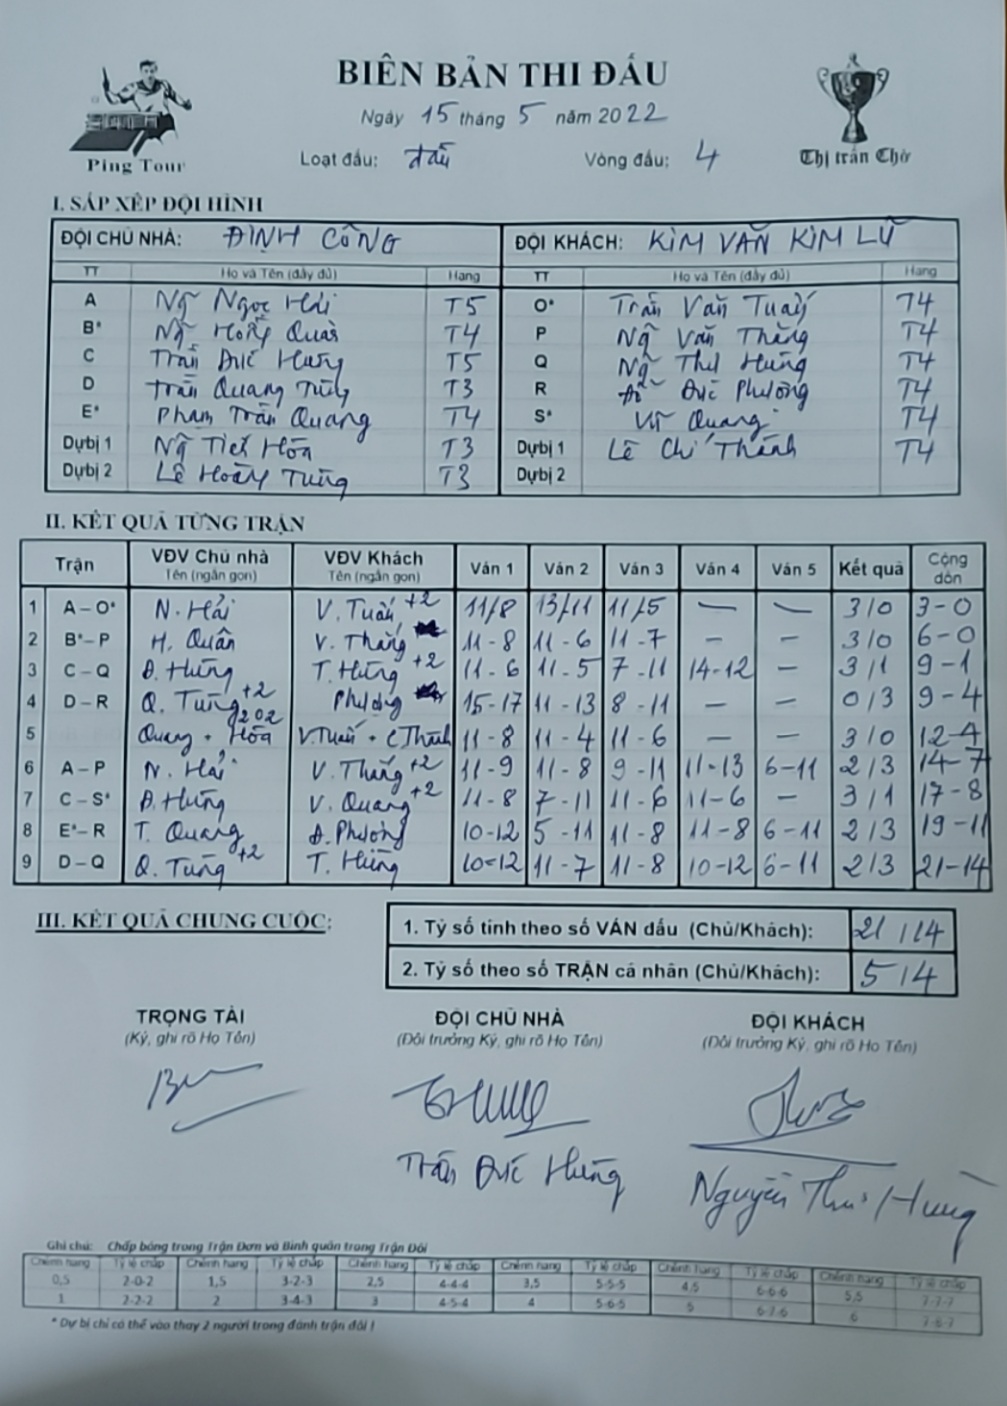 BIÊN BẢN THI ĐẤU
Ngày 15 tháng 5 năm 2022
Loạt đấu: Vòng đấu: 4
Ping Tour
Thị trấn Chờ
I. SẮP XẾP ĐỘI HÌNH
ĐỘI CHỦ NHÀ: ĐỊNH CÔNG ĐỘI KHÁCH: KIM VĂN KIM LŨ
TT Họ và Tên (đầy đủ) Hạng TT Họ và Tên (đầy đủ) Hạng
A Ng̃ Ngọc Hải T5 O* Trần Văn Tuấn T4
B* Ng̃ Hồng Quân T4 P Ng̃ Văn Thắng T4
C Trần Đức Hưng T5 Q Ng̃ Thu Hùng T4
D Trần Quang Tùng T3 R Đỗ Đức Phương T4
E* Phạm Trần Quang T4 S* Vũ Quang T4
Dự bị 1 Ng̃ Tiến Hòa T3 Dự bị 1 Lê Chí Thành T4
Dự bị 2 Lê Hoàng Tùng T3 Dự bị 2
II. KẾT QUẢ TỪNG TRẬN
Trận VĐV Chủ nhà VĐV Khách Ván 1 Ván 2 Ván 3 Ván 4 Ván 5 Kết quả Cộng dồn
Tên (ngắn gọn) Tên (ngắn gọn)
1 A – O* N. Hải V. Tuấn +2 11/8 13/11 11/5 — — 3/0 3-0
2 B* – P H. Quân V. Thắng 11-8 11-6 11-7 - - 3/0 6-0
3 C – Q Đ. Hưng T. Hùng +2 11-6 11-5 7-11 14-12 - 3/1 9-1
4 D – R Q. Tùng +2 Phương 15-17 11-13 8-11 - - 0/3 9-4
5 Quang + Hòa 202 V.Tuấn + C Thành 11-8 11-4 11-6 - - 3/0 12-4
6 A – P N. Hải V. Thắng +2 11-9 11-8 9-11 11-13 6-11 2/3 14-7
7 C – S* Đ. Hưng V. Quang +2 11-8 7-11 11-6 11-6 - 3/1 17-8
8 E* – R T. Quang Đ. Phương 10-12 5-11 11-8 11-8 6-11 2/3 19-11
9 D – Q Q. Tùng +2 T. Hùng 10-12 11-7 11-8 10-12 6-11 2/3 21-14
III. KẾT QUẢ CHUNG CUỘC:
1. Tỷ số tính theo số VÁN đấu (Chủ/Khách): 21/14
2. Tỷ số theo số TRẬN cá nhân (Chủ/Khách): 5/4
TRỌNG TÀI ĐỘI CHỦ NHÀ ĐỘI KHÁCH
(Ký, ghi rõ Họ Tên) (Đội trưởng Ký, ghi rõ Họ Tên) (Đội trưởng Ký, ghi rõ Họ Tên)
Trần Đức Hưng Nguyễn Thu Hùng
Ghi chú: Chấp bóng trong Trận Đơn và Bình quân trong Trận Đôi
Chênh hạng Tỷ lệ chấp Chênh hạng Tỷ lệ chấp Chênh hạng Tỷ lệ chấp Chênh hạng Tỷ lệ chấp Chênh hạng Tỷ lệ chấp Chênh hạng Tỷ lệ chấp
0,5 2-0-2 1,5 3-2-3 2,5 4-4-4 3,5 5-5-5 4,5 6-6-6 5,5 7-7-7
1 2-2-2 2 3-4-3 3 4-5-4 4 5-6-5 5 6-7-6 6 7-8-7
* Dự bị chỉ có thể vào thay 2 người trong đánh trận đôi !